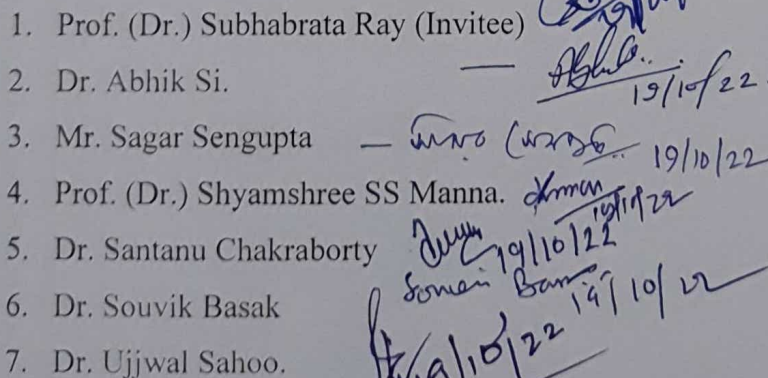 1. Prof. (Dr.) Subhabrata Ray (Invitee)
2. Dr. Abhik Si. — 19/10/22
3. Mr. Sagar Sengupta — 19/10/22
4. Prof. (Dr.) Shyamshree SS Manna. 19/10/22
5. Dr. Santanu Chakraborty 19/10/22
6. Dr. Souvik Basak 19/10/22
7. Dr. Ujjwal Sahoo. /10/22